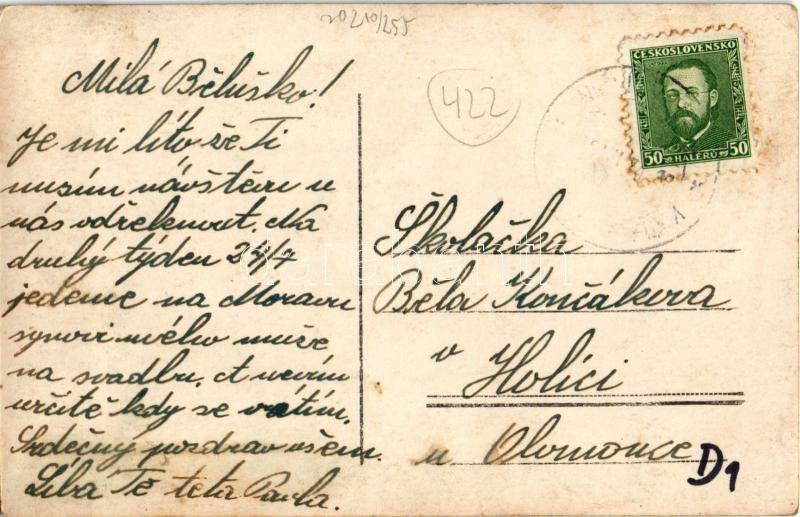 20210/255
Milá Běluško!
Je mi líto že Ti
musím návštěvu u
nás odřeknout. Na
druhý týden 24/4
jedeme na Moravu
synovi mého muže
na svadbu. A nevím
určitě kdy se vrátím.
Srdečný pozdrav všem.
Líbá Tě teta Pavla.
422
ČESKOSLOVENSKO
50 HALÉŘŮ 50
Školačka
Běla Končáková
v Holici
u Olomouce
D1
darabanth